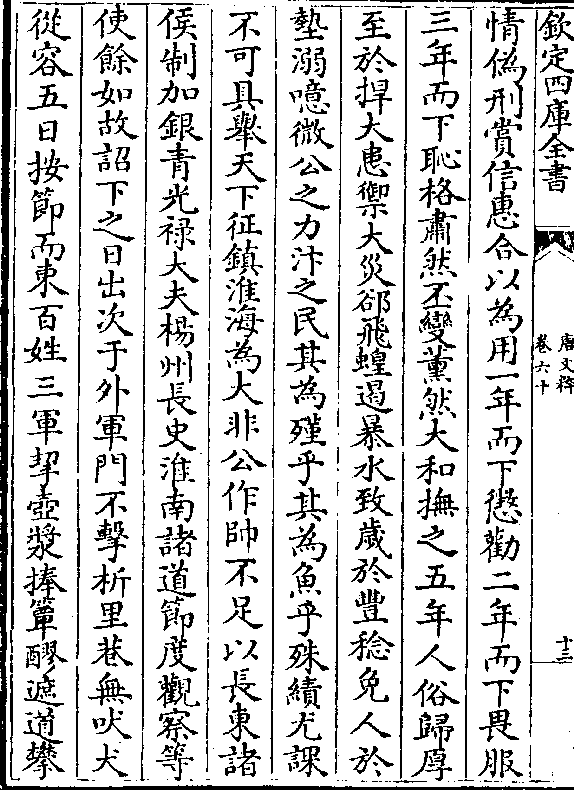 欽定四庫全書
唐文粹
卷六十
十三
情偽刑賞信惠合以為用一年而下懲勸二年而下畏服
三年而下恥格肅然丕變薰然大和撫之五年人俗歸厚
至於捍大患禦大災郤飛蝗遏暴水致歲於豐稔免人於
墊溺噫微公之力汴之民其為殣乎其為魚乎殊績尤課
不可具舉天下征鎮淮海為大非公作帥不足以長東諸
侯制加銀青光禄大夫楊州長史淮南諸道節度觀察等
使餘如故詔下之日出次于外軍門不擊柝里巷無吠犬
從容五日按節而東百姓三軍挈壺漿捧簞醪遮道攀